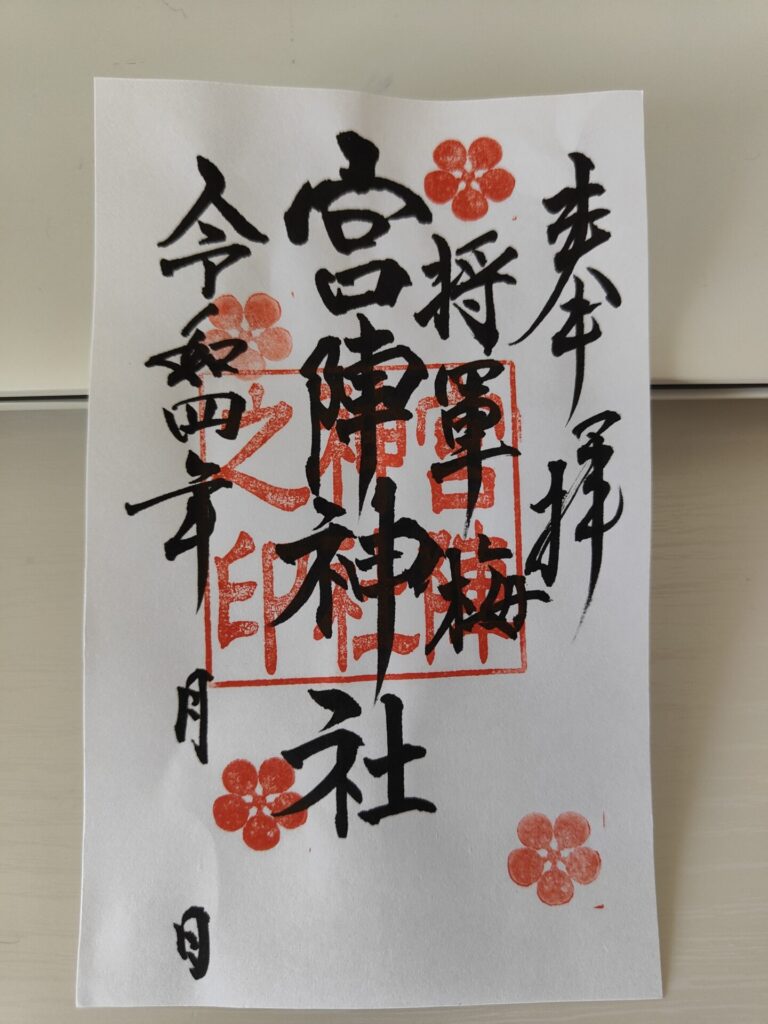 奉拝
将軍梅
宮陣神社
令和四年 月 日
宮陣
神社
之印